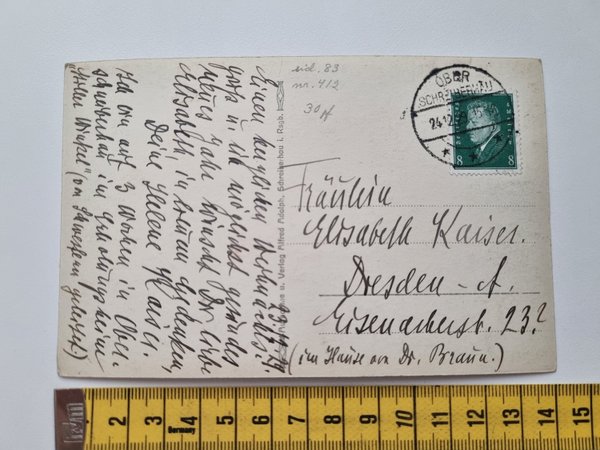 Einen herzlichen Weihnachts-
gruß u. ein möglichst gesundes
neues Jahr wünscht Dir, liebe
Elisabeth in treuem Gedenken,
Deine Helene Kaiser.
Ich bin auf 3 Wochen in Ober-
schreiberhau im Erholungsheime
"Stiller Winkel" (von Schwestern geleitet.)
u. Verlag Alfred Adolph, Schreiberhau i. Rsgb.
nr. 412
30 Pf
OBER
SCHREIBERHAU
24.12
8 8
Fräulein
Elisabeth Kaiser.
Dresden-A.
Eisenacherstr. 23 2
(im Hause von Dr. Braun.)
1 2 3 4 5 6 7 8 9 10 11 12 13 14 15
Germany